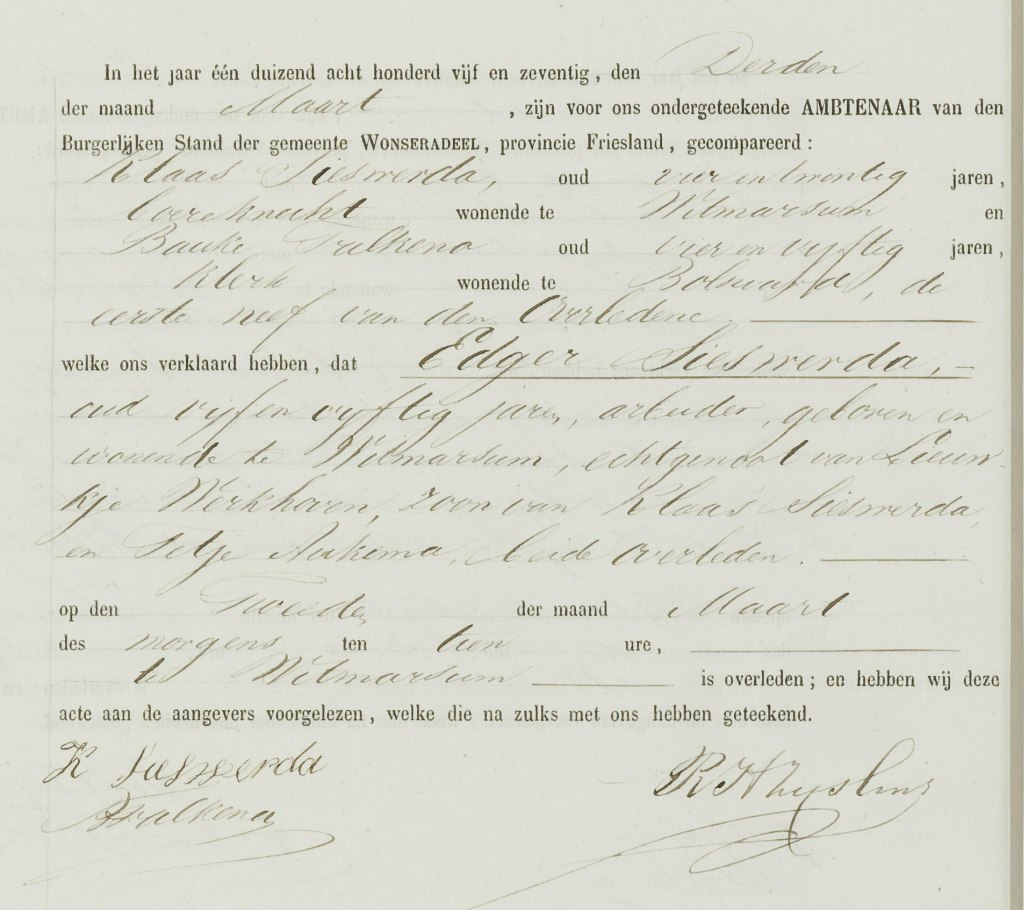 In het jaar één duizend acht honderd vijf en zeventig, den Derden
der maand Maart, zijn voor ons ondergeteekende AMBTENAAR van den
Burgerlijken Stand der gemeente WONSERADEEL, provincie Friesland, gecompareerd:
Klaas Sieswerda, oud vier en twentig jaren,
boereknecht wonende te Witmarsum en
Bauke Falkena oud vier en vyftig jaren,
klerk wonende te Bolsward, de
eerste neef van den Overledene
welke ons verklaard hebben, dat Edger Sieswerda,
oud vijf en vyftig jaren, arbeider, geboren en
wonende te Witmarsum, echtgenoot van Leeuw-
kje Werkhoven, zoon van Klaas Sieswerda,
en Tetje Aukema, beide overleden.
op den Tweeden der maand Maart
des morgens ten tien ure,
te Witmarsum is overleden; en hebben wij deze
acte aan de aangevers voorgelezen, welke die na zulks met ons hebben geteekend.
K Sieswerda
BFalkena